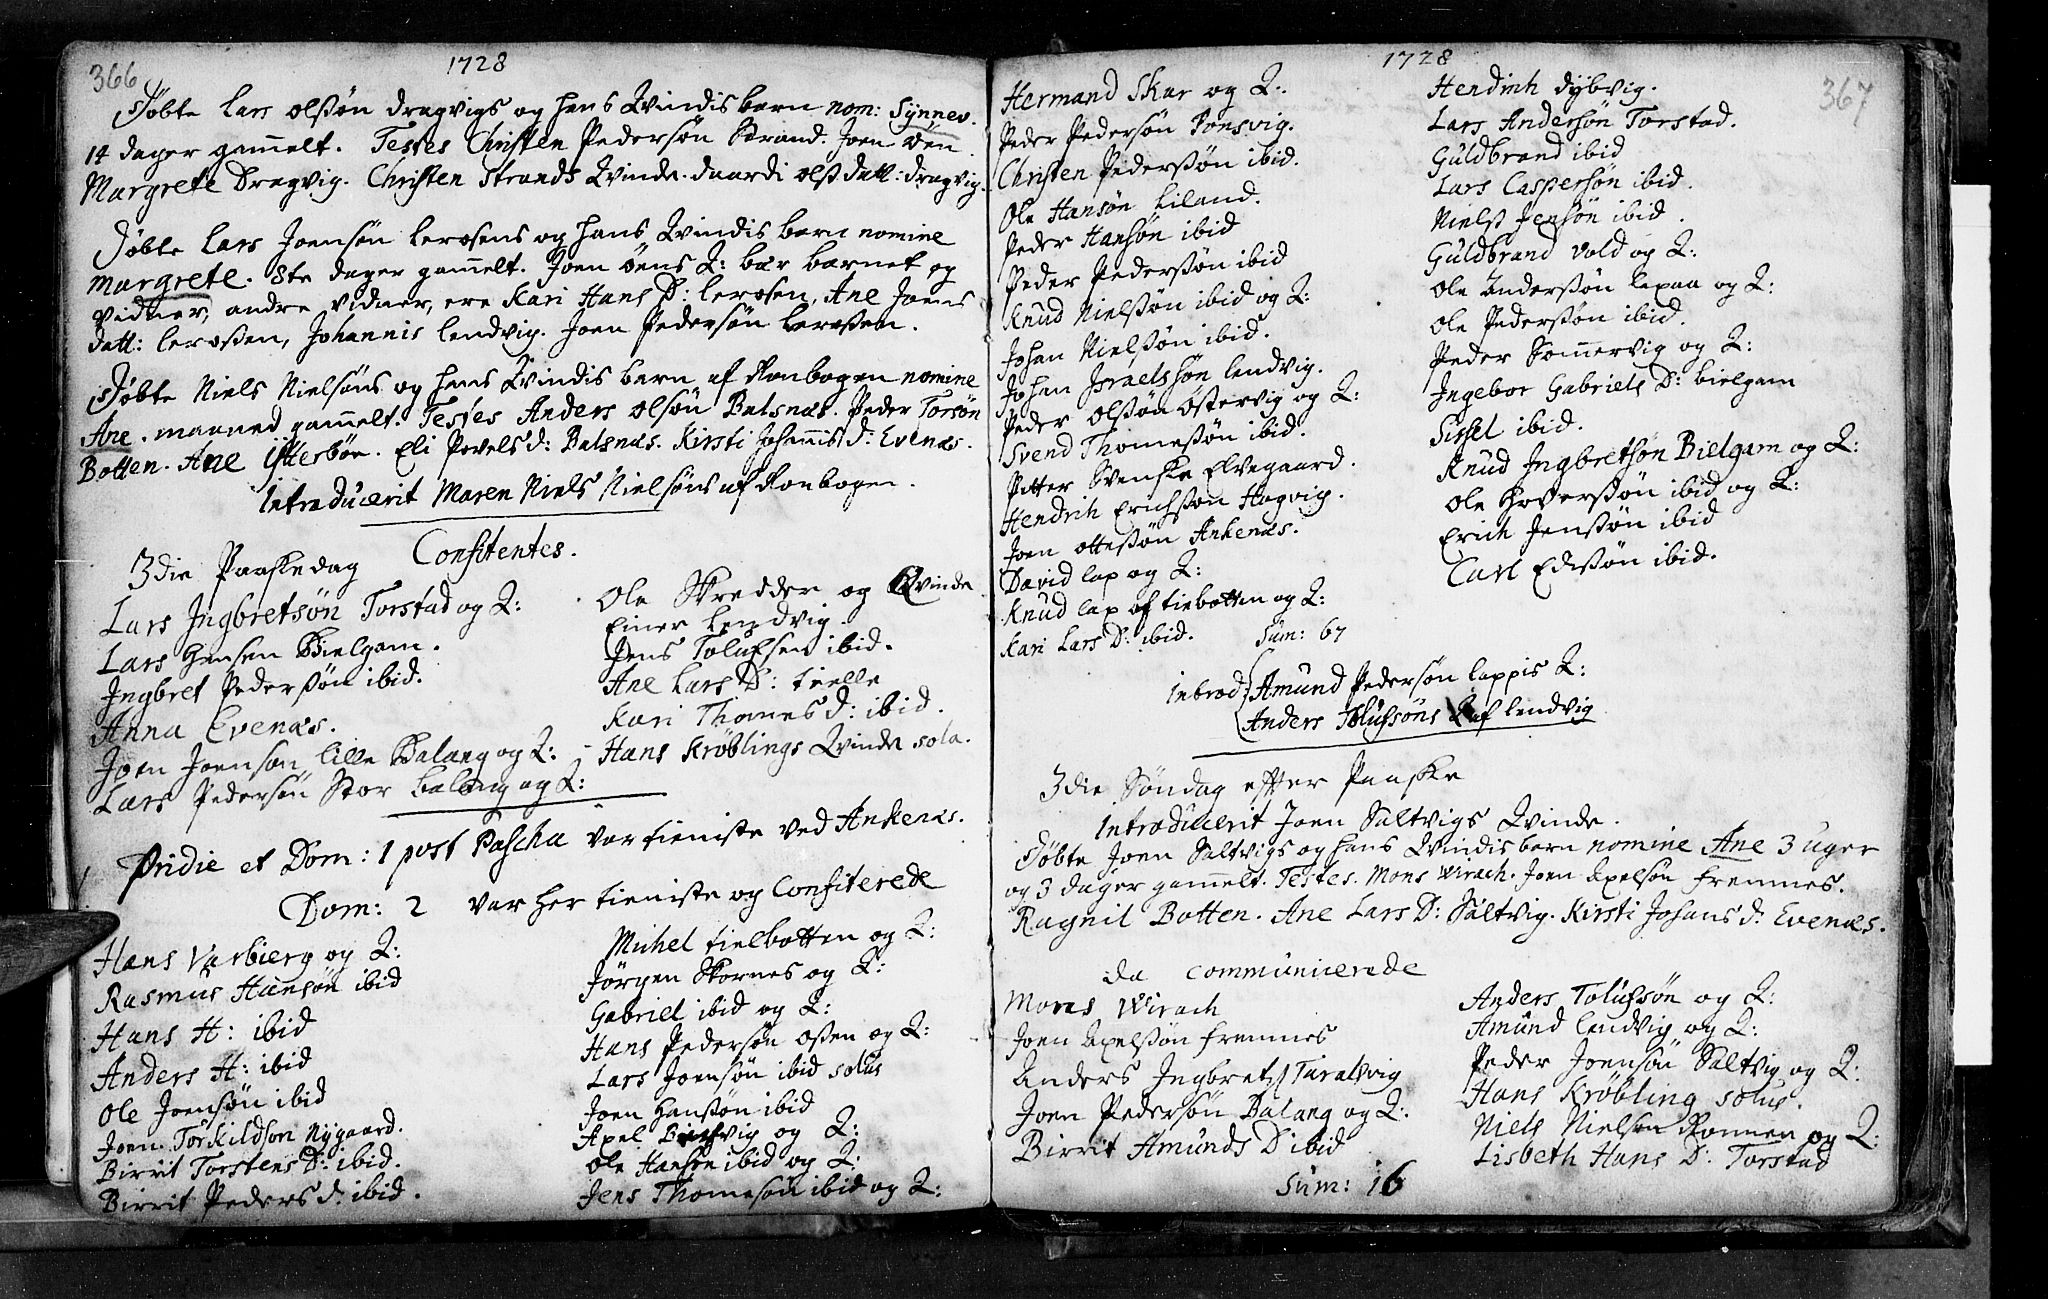 366
1728
Døbte Lars olssøn dragvigs og hans Qvindis barn nom: Synnev.
14 dager gammelt. Testes Christen Pedersøn Strand. Joen øen.
Margrete Dragvig. Christen Strands Qvinde. Daardi olss datt: dragvig.
Døbte Lars Joensøn Lerosens og hans Qvindis barn nomine
Margrete. 8te dager gammelt. Joen øens Q: bær barnet og
vidner, andre vidner, ere Kari Hans D: lerosen, Ane Joens
datt: lerossen, Johannis lendvig. Joen Pedersøn Lerossen.
Døbte Niels Nielsøns og hans Qvindis barn af Konbogen nomine
Ane. maaned gammelt. Testes Anders olsøn Balsnæs. Peder Torsøn
Botten. Ane ijttesbøe. Eli Povels d: Balsnæs. Kirsti Johannis d: Evenæs.
Introducerit Maren Niels Nielsøns af Konbogen.
Confitentes.
3die Paaskedag
Lars Ingbretsøn Torstad og Q:
Lars Hensen Bielgam.
Ingbret Pederssøn ibid.
Anna Evenæs.
Joen Joensøn lille Balang og Q:
Lars Pedersøn Stor balang og Q:
Ole Skredder og Qvinde
Einer Lendvig.
Jens Tolufsen ibid.
Ane Lars D: tielle
Kari Thomes d: ibid.
Hans Krøblings Qvinde sola.
Pridie et Dom: 1 post Pascha var tieniste ved Ankenæs.
Dom: 2 var her tieniste og Confiterede
Hans Varbierg og Q:
Rasmus Hansøn ibid
Hans H: ibid
Anders H: ibid
Ole Joensøn ibid
Joen Torkildson Nygaard.
Birrit Torstens D: ibid.
Birrit Peders d: ibid.
Michel tielbotten og Q:
Jörgen Skornes og Q:
Gabriel ibid og Q:
Hans Pedersøn ossen og Q:
Lars Joensøn ibid solus
Joen Hanssøn ibid
Axel vig og Q:
Ole Hansøn ibid og Q:
Jens Thomesøn ibid og Q:
1728
367
Hermand Skar og Q:.
Peder Pedersøn Ponsvig.
Christen Pederssøn ibid.
Ole Hansøn Liland.
Peder Hansøn ibid
Peder Pederssøn ibid
Knud Nielssøn ibid og Q:
Johan Nielssøn ibid.
Johan Israelssøn lendvig.
Peder olssøn østervig og Q:
Svend Thomessøn ibid.
Pitter Svenske Elvegaard.
Hendrich Erichssøn Hagvig.
Joen ottessøn Ankenæs.
David lap og Q:
Knud lap af tiebotten og Q:
Kari Lars D: ibid.
Sum: 67
Hendrich dybvig.
Lars Andersøn Torstad.
Guldbrand ibid
Lars Caspersøn ibid.
Nielss Jensøn ibid.
Guldbrand vold og Q:.
Ole Anderssøn lepaa og Q:
Ole Pederssøn ibid.
Peder Sommervig og Q:
Ingebor Gabriels D: bielgam
Sissel ibid.
Knud Ingbretsøn Bielgam og Q:
Ole Hoverssøn ibid og Q:
Erich Jenssøn ibid
Carl Edissøn ibid.
introd: Amund Pedersøn lappis Q:
Anders Tolufsøns Q af lendvig
3die Søndag efter Paaske
Introducerit Joen Saltvigs Qvinde.
Døbte Joen Saltvigs og hans Qvindis barn nomine Ane 3 uger
og 3 dager gammelt. Testes. Mons Wirach. Joen Axelsøn Fremnes.
Ragnil Botten. Ane Lars D: Saltvig. Kirsti Johans d: Evenæs.
da communicerede
Mons Wirach
Joen Axelssøn fremnes
Anders Ingbrets Taralsvig
Joen Pedersøn Balang og Q:
Birrit Amunds D ibid
Anders Tolufsøn og Q:
Amund lendvig og Q:
Peder Joensøn Saltvig og Q:
Hans Krøbling solus.
Niels Nielsen Konnen og Q:
Lisbeth Hans D: Torstad
Sum: 16